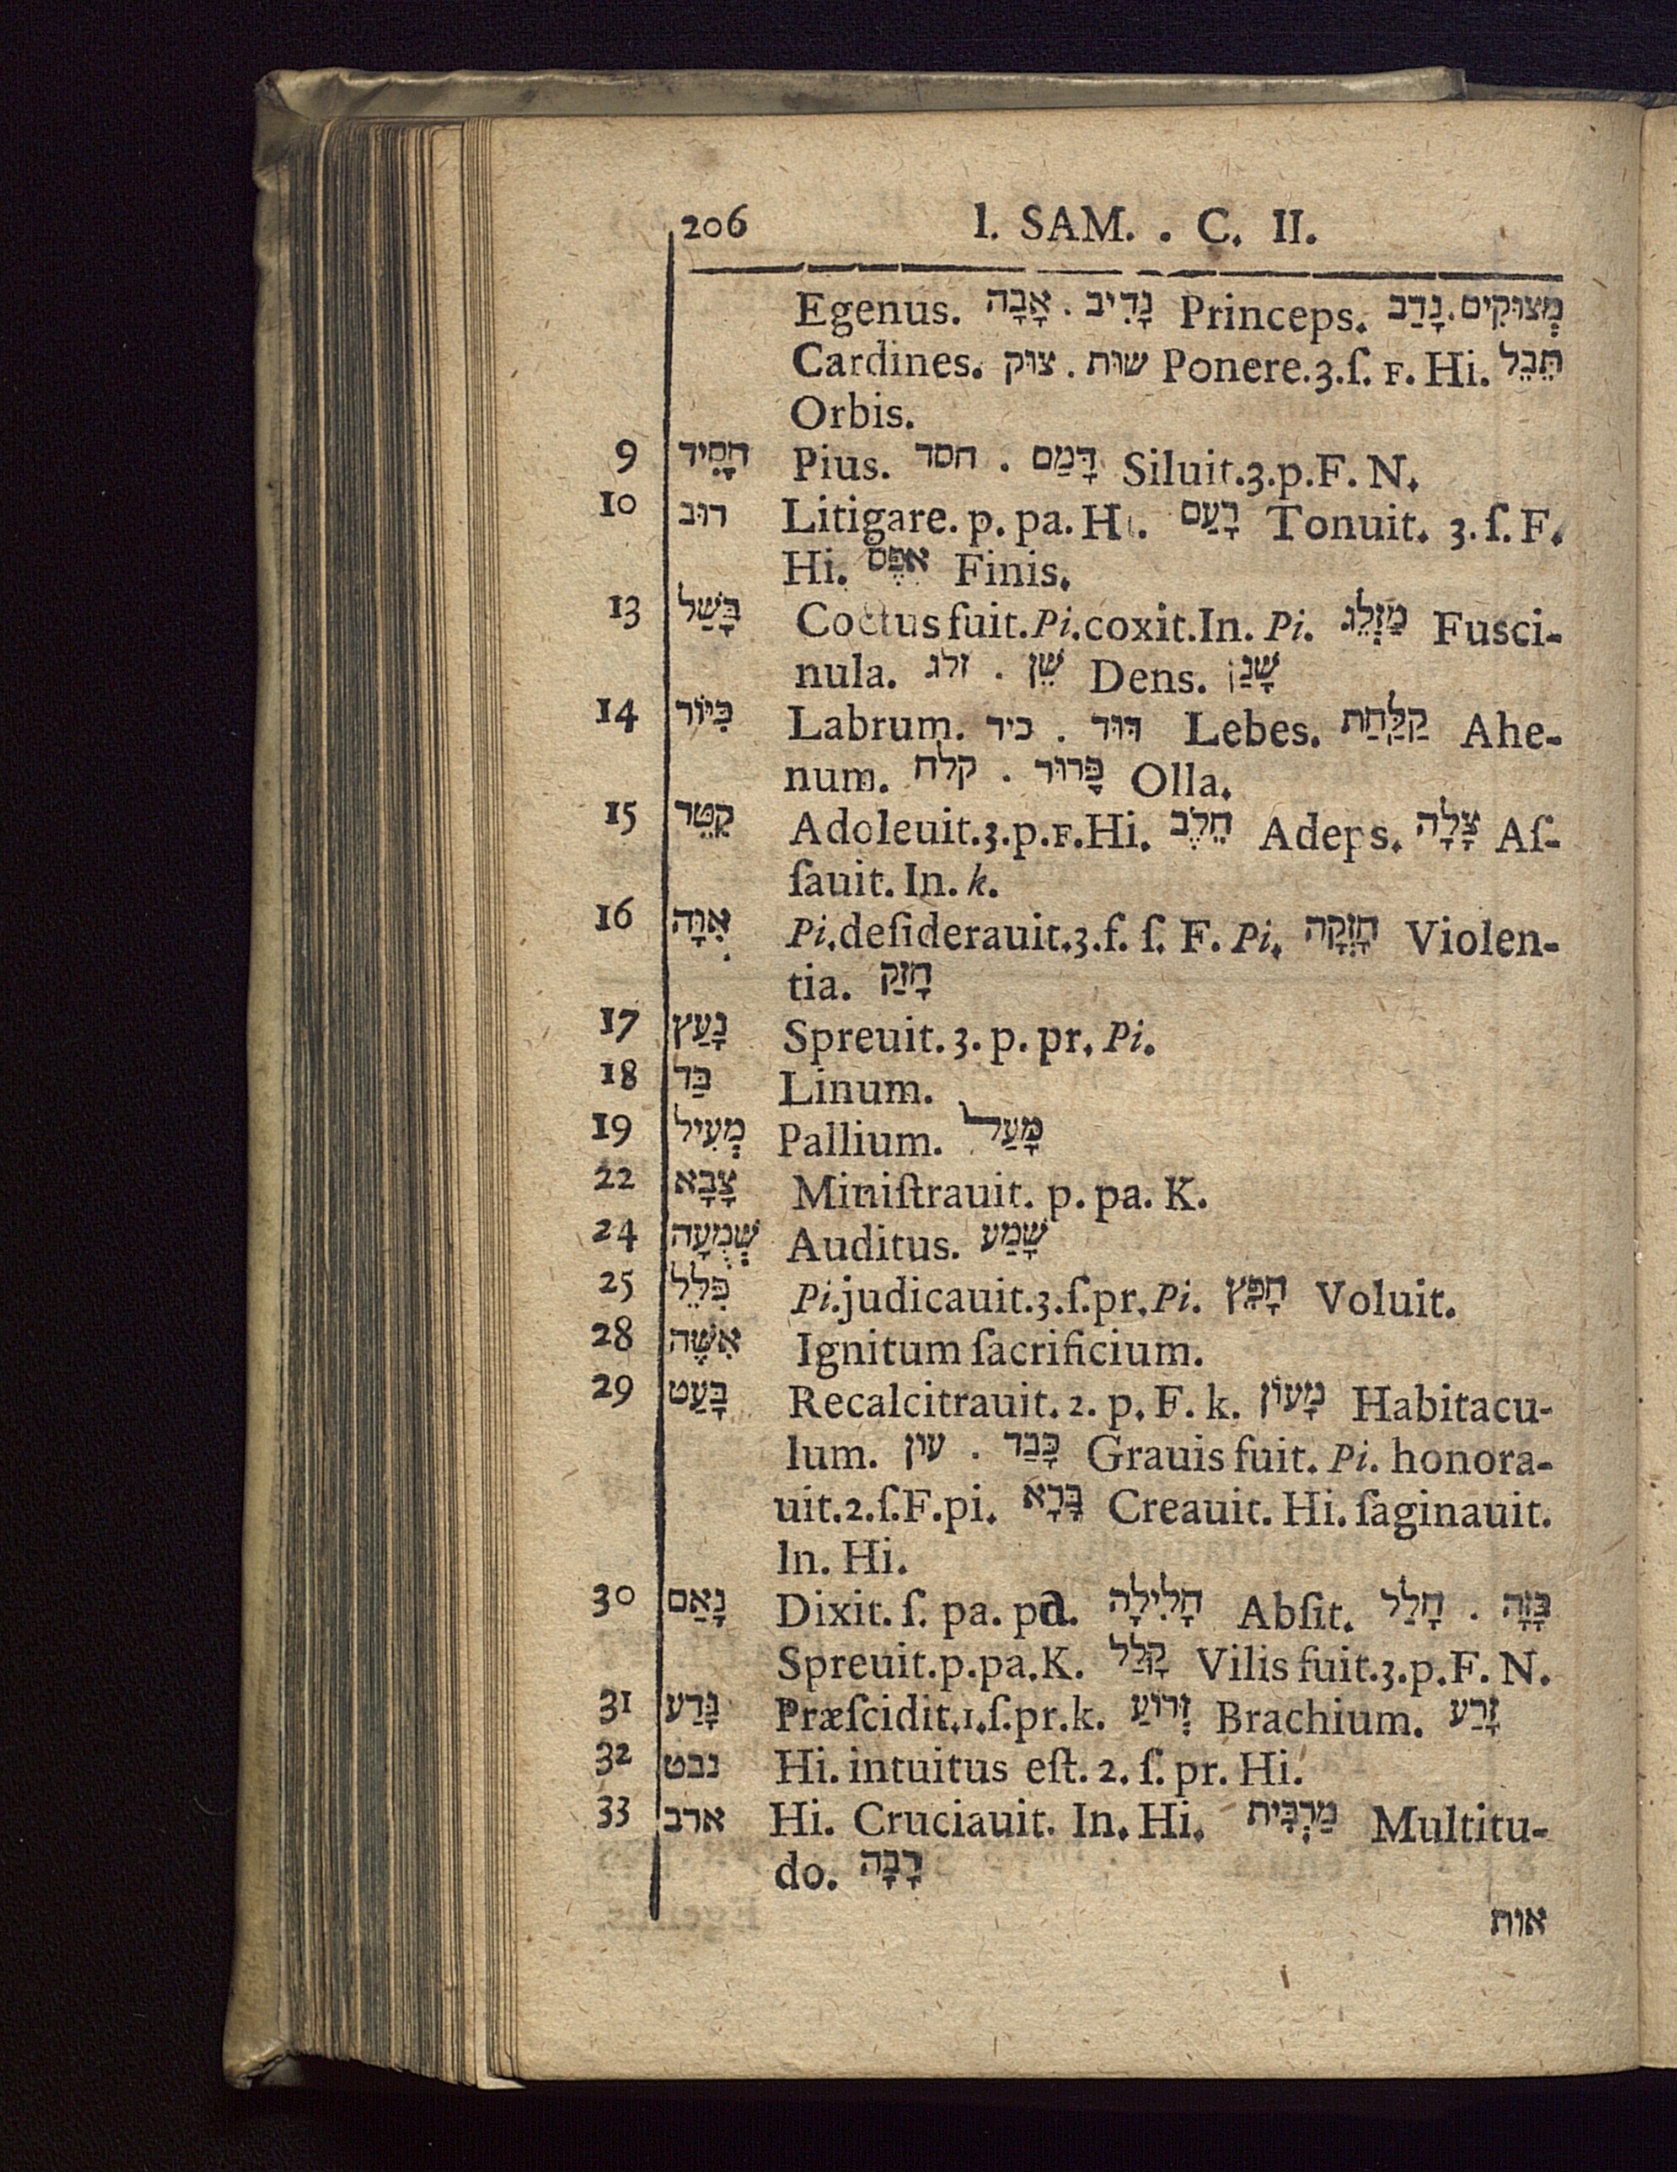 206 I. SAM. . C. II.
Egenus. אָבָה . נָדִיב Princeps. נָדַב . מְצוּקִים
Cardines. צוּק . שׁוּת Ponere.3.ſ. F. Hi. תֵּבֵל
Orbis.
9 חָסִיד Pius. חסד . דָּמַם Siluit.3.p.F. N.
10 רוּב Litigare. p. pa. Hi. רָעַם Tonuit. 3. ſ. F.
Hi. אֶפֶס Finis.
13 בָּשַׁל Coctus fuit. Pi. coxit. In. Pi. מַזְלֵג Fusci-
nula. זלג . שֵׁן Dens. שָׁנַן
14 כִּיּוֹר Labrum. כיר . דּוּד Lebes. קַלַּחַת Ahe-
num. קלח . פָּרוּר Olla.
15 קִטֵּר Adoleuit.3.p.F.Hi. חֵלֶב Adeps. צָלָה Aſ-
ſauit. In. k.
16 אִוָּה Pi. deſiderauit.3.f. ſ. F. Pi. חָזְקָה Violen-
tia. חָזַק
17 נָעַץ Spreuit. 3. p. pr. Pi.
18 בַּד Linum.
19 מְעִיל Pallium. מָעַל
22 צָבָא Miniſtrauit. p. pa. K.
24 שְׁמֻעָה Auditus. שָׁמַע
25 פִּלֵּל Pi. judicauit.3.ſ.pr. Pi. חָפֵץ Voluit.
28 אִשֶּׁה Ignitum ſacrificium.
29 בָּעַט Recalcitrauit. 2. p. F. k. מָעוֹן Habitacu-
lum. עון . כָּבַד Grauis fuit. Pi. honora-
uit.2.ſ.F.pi. בָּרָא Creauit. Hi. ſaginauit.
In. Hi.
30 נָאַם Dixit. ſ. pa. pa. חָלִילָה Abſit. חָלַל . בָּזָה
Spreuit.p.pa.K. קָלַל Vilis fuit.3.p.F. N.
31 גָּדַע Præſcidit.1.ſ.pr.k. זְרוֹעַ Brachium. זָרַע
32 נבט Hi. intuitus eſt. 2. ſ. pr. Hi.
33 ארב Hi. Cruciauit. In. Hi. מַרְבִּית Multitu-
do. רָבָה
אות